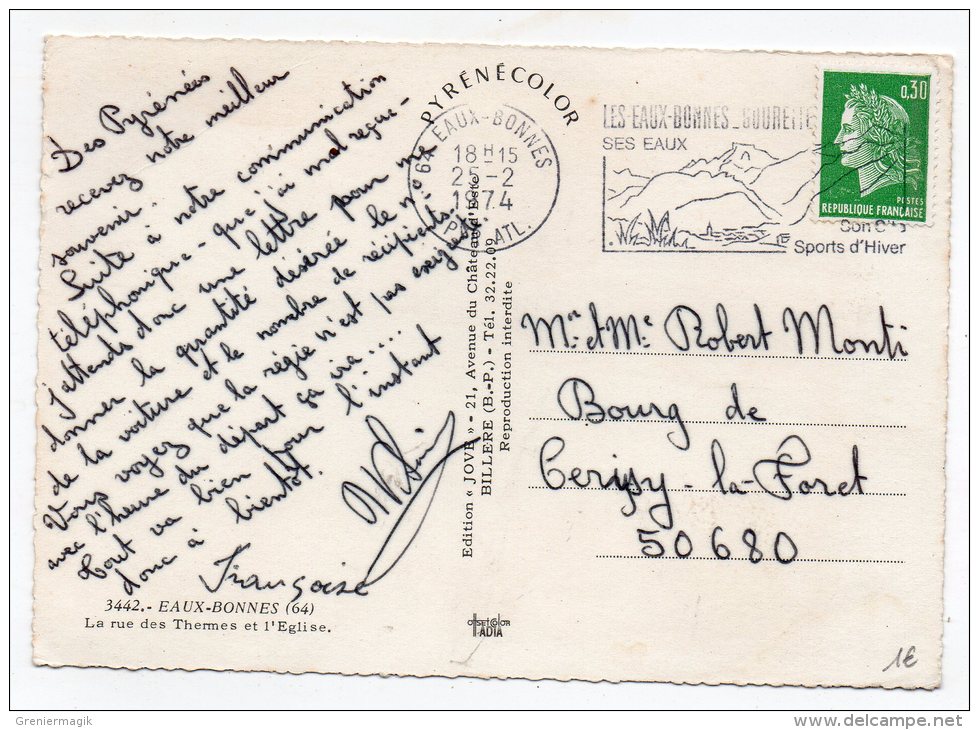 Des Pyrénées
recevez notre meilleur
souvenir.
Suite à notre communication
téléphonique - que j'ai mal reçue -
J'attends donc une lettre pour me
donner la quantité désirée le n°
de la voiture et le nombre de récipients.
Vous voyez que la régie n'est pas exigeante.
avec l'heure du départ ça ira....
Tout va bien pour l'instant
donc à bientôt.
Françoise
3442.- EAUX-BONNES (64)
La rue des Thermes et l'Eglise.
PYRÉNÉCOLOR
Edition « JOVE » - 21, Avenue du Château d'Este
BILLERE (B.-P.) - Tél. 32.22.09
Reproduction interdite
64 EAUX-BONNES
18 H 15
25-2
1974
PYR. ATL.
LES-EAUX-BONNES_GOURETTE
SES EAUX
Sports d'Hiver
0,30
POSTES
REPUBLIQUE FRANÇAISE
Mr. et Me Robert Monti
Bourg de
Cerisy-la-Foret
50680
OFFSET COLOR
IADIA
1€
Greniermagik
www.delcampe.net